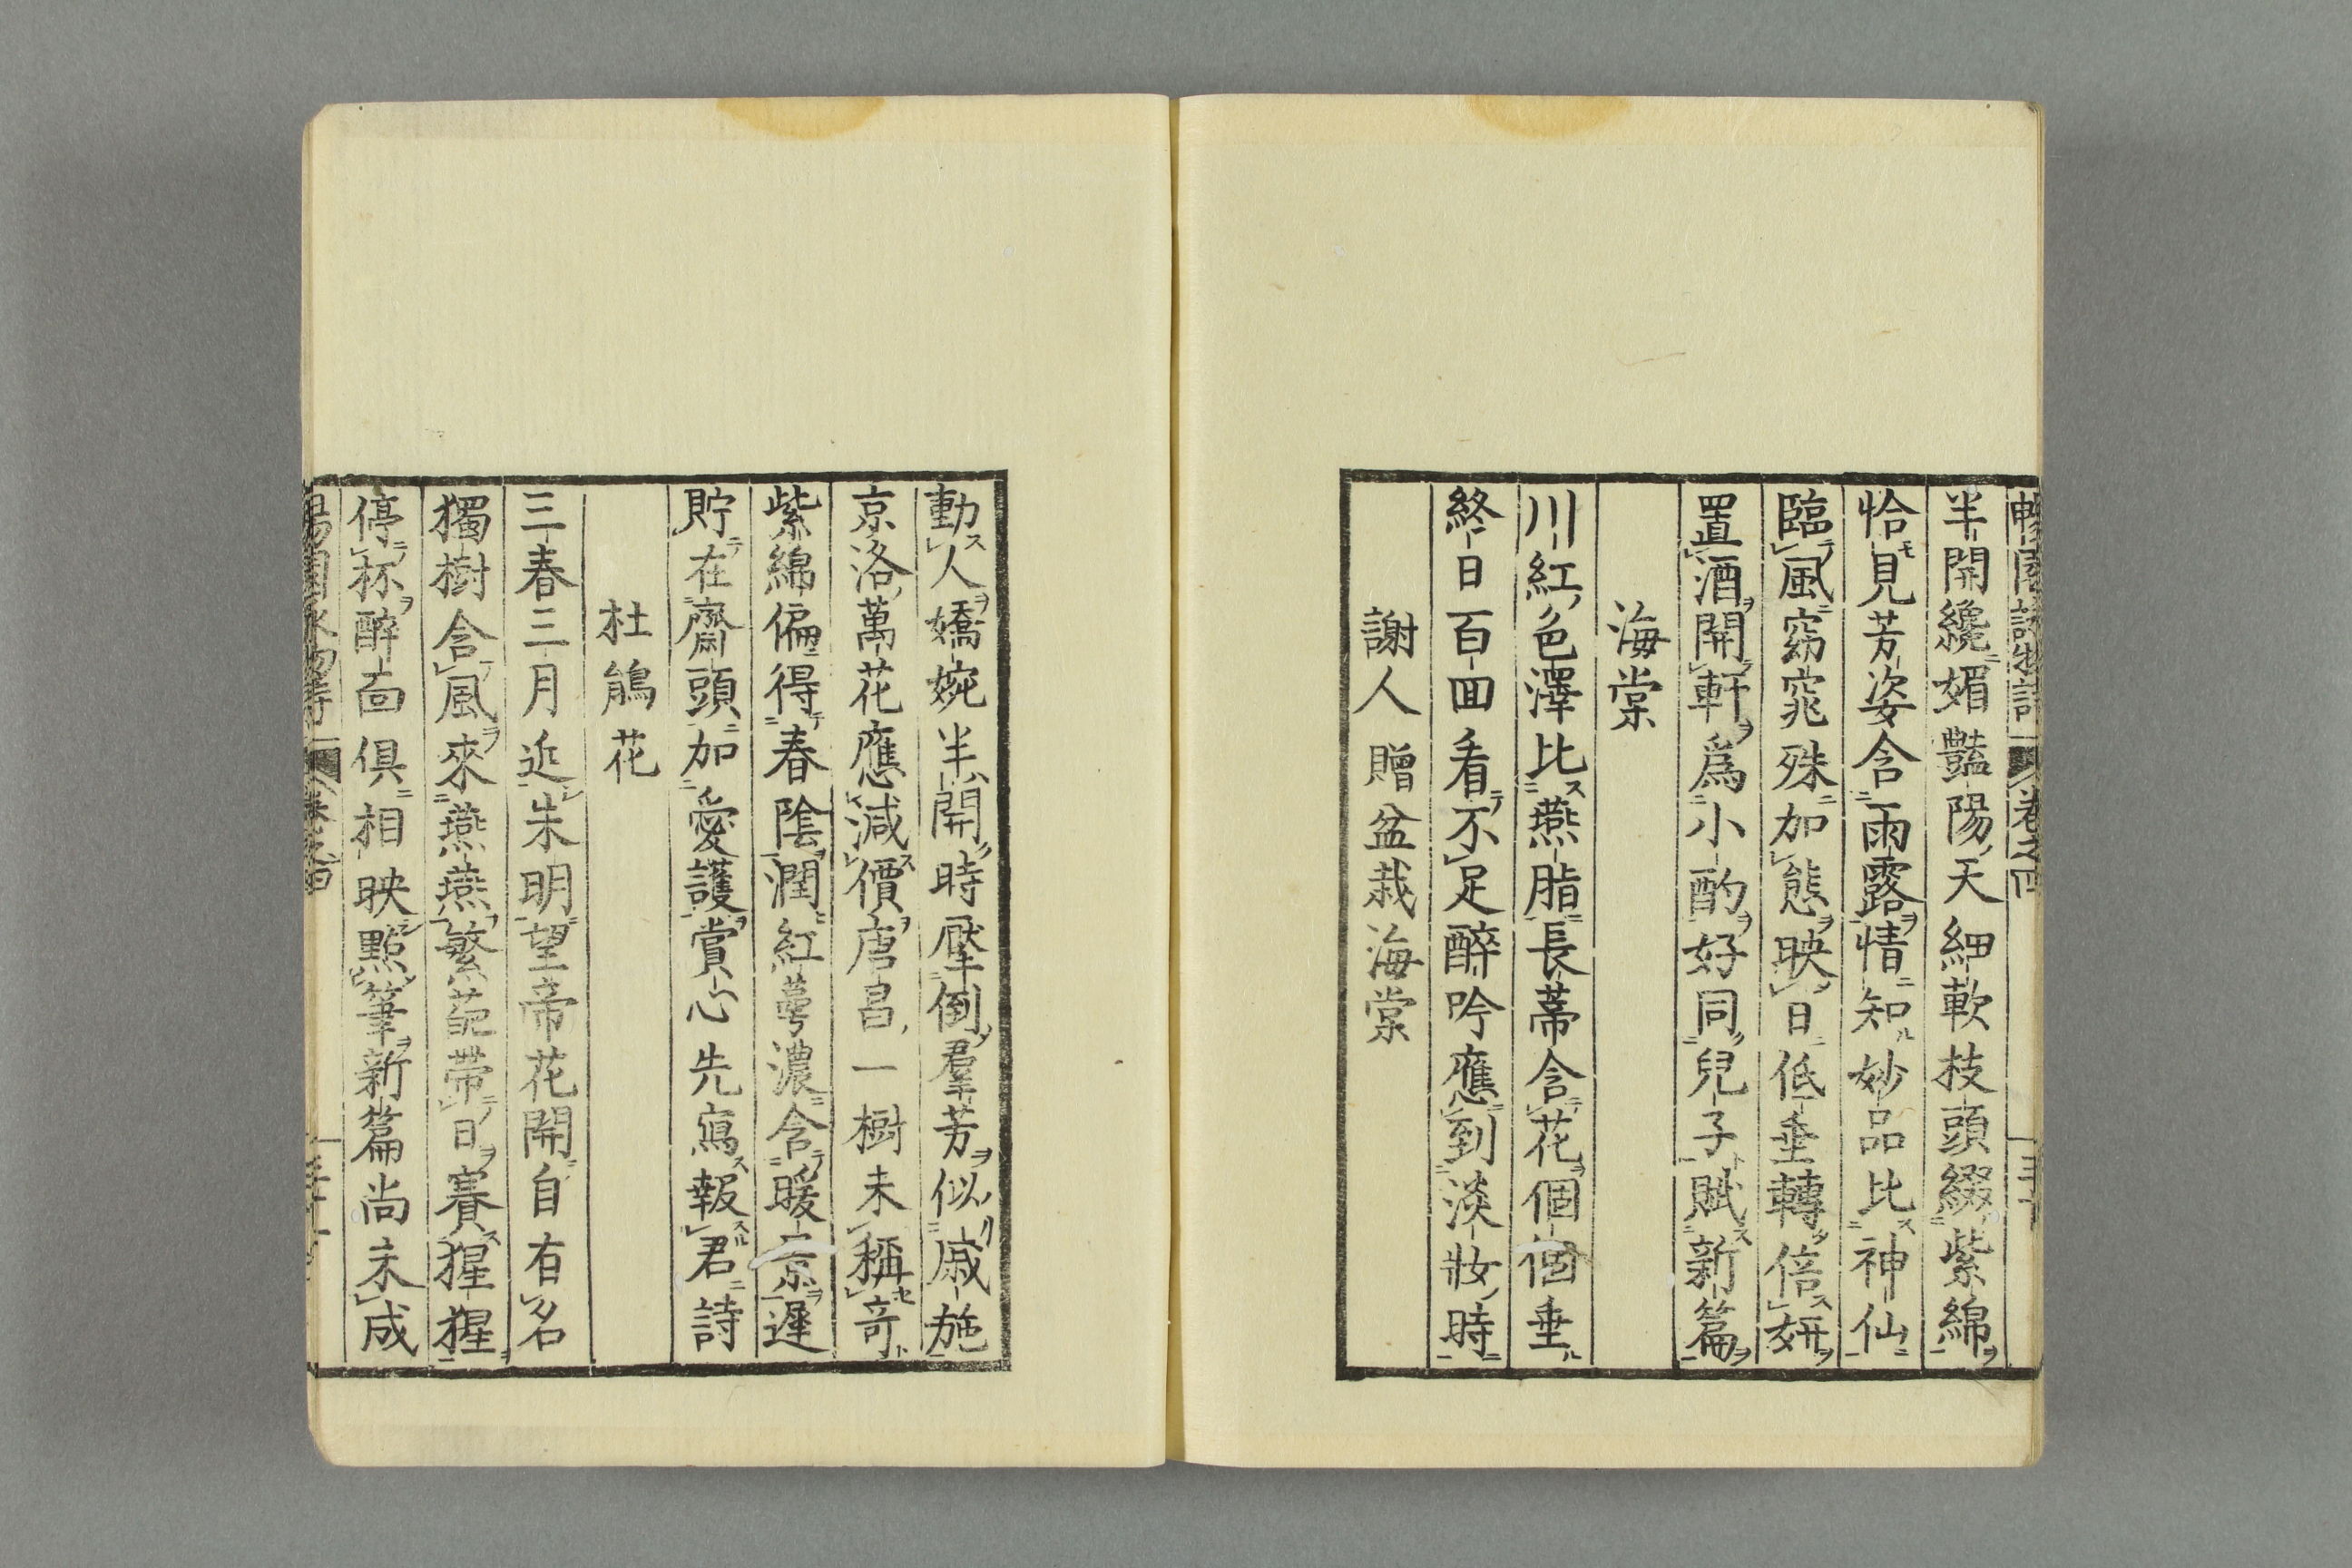 半開纔媚豔陽天細軟枝頭綴紫綿
恰見芳姿含雨露情知妙品比神仙
臨風窈窕殊加態映日低垂轉倍妍
置酒開軒爲小酌好同兒子賦新篇
海棠
川紅色澤比燕脂長蒂含花個個垂
終日百回看不足醉吟應到淡妝時
謝人贈盆栽海棠
動人嬌婉半開時壓倒羣芳似戚施
京洛萬花應減價唐昌一樹未稱奇
紫綿偏得春陰潤紅萼濃含暖景遲
貯在齋頭加愛護賞心先寫報君詩
杜鵑花
三春三月近朱明望帝花開自有名
獨樹含風來燕燕繁葩帶日賽猩猩
停杯醉面俱相映點筆新篇尚未成